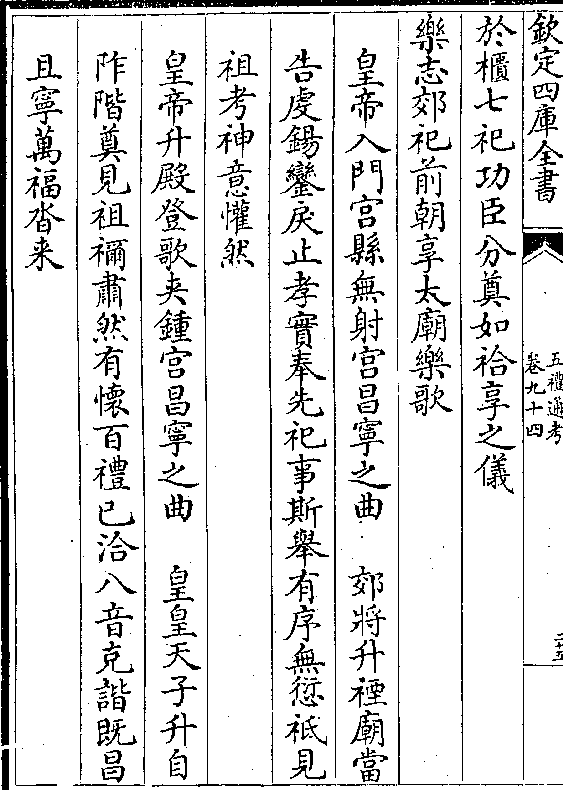 欽定四庫全書
五禮通考
卷九十四
二十五
於櫃七祀功臣分奠如祫享之儀
樂志郊祀前朝享太廟樂歌
皇帝入門宮縣無射宮昌寧之曲　郊將升禋廟當
告虔錫鑾戾止孝實奉先祀事斯舉有序無愆祗見
祖考神意懽然
皇帝升殿登歌夾鍾宮昌寧之曲　皇皇天子升自
阼階奠見祖禰肅然有懷百禮已洽八音克諧既昌
且寧萬福沓來